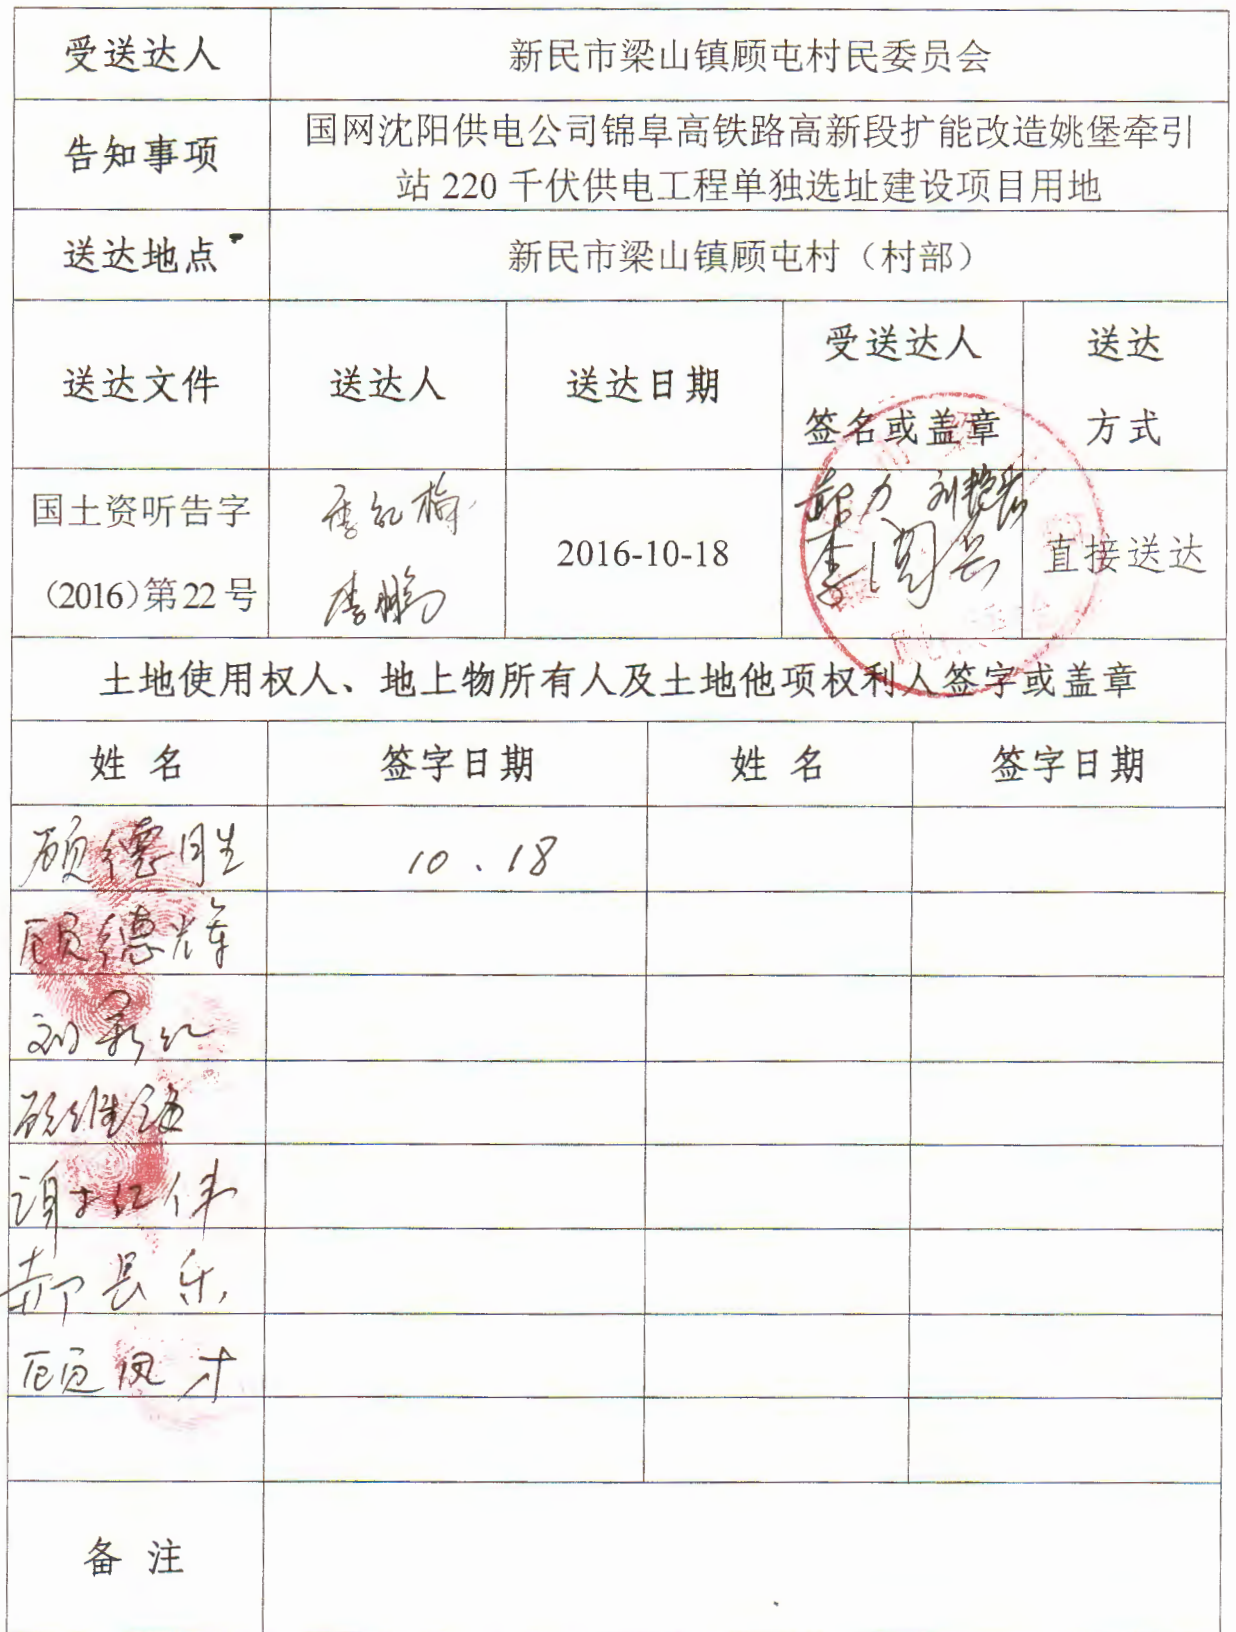 受送达人
新民市梁山镇顾屯村民委员会
告知事项
国网沈阳供电公司锦阜高铁路高新段扩能改造姚堡牵引
站 220 千伏供电工程单独选址建设项目用地
送达地点
新民市梁山镇顾屯村（村部）
送达文件
送达人
送达日期
受送达人
签名或盖章
送达
方式
国土资听告字
（2016）第22号
李红梅
李鹏
2016-10-18
直接送达
土地使用权人、地上物所有人及土地他项权利人签字或盖章
姓 名
签字日期
姓 名
签字日期
顾德胜
10.18
顾德辉
顾维
谢红伟
郝县乐
顾凤才
备 注